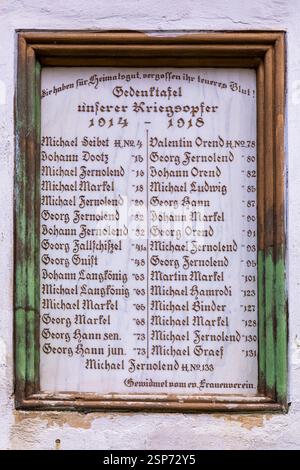 Sie haben für Heimatsgut, vergossen ihr teueres Blut!
Gedenktafel
unserer Kriegsopfer
1914 - 1918
Michael Seibet H.No.4
Johann Dootz " 15
Michael Fernolend " 16
Michael Markel " 18
Michael Fernolend
Georg Fernolend " 32
Johann Fernolend " 32
Georg Fallschißel " 41a
Georg Gunst " 48
Johann Langköнig " 63
Michael Langkönig " 63
Michael Markel " 65
Georg Markel " 68
Georg Hann sen. " 73
Georg Hann jun. " 73
Valentin Orend H.No.78
Georg Fernolend " 80
Johann Orend " 82
Michael Ludwig " 85
Georg Hann " 87
Johann Markel " 88
Georg Orend " 91
Michael Fernolend " 93
Georg Fernolend " 95
Martin Markel " 101
Michael Hamrodi " 123
Michael Binder " 127
Michael Markel " 128
Michael Fernolend " 130
Michael Graef " 131
Michael Fernolend H.No.133
Gewidmet vom ev. Frauenverein.